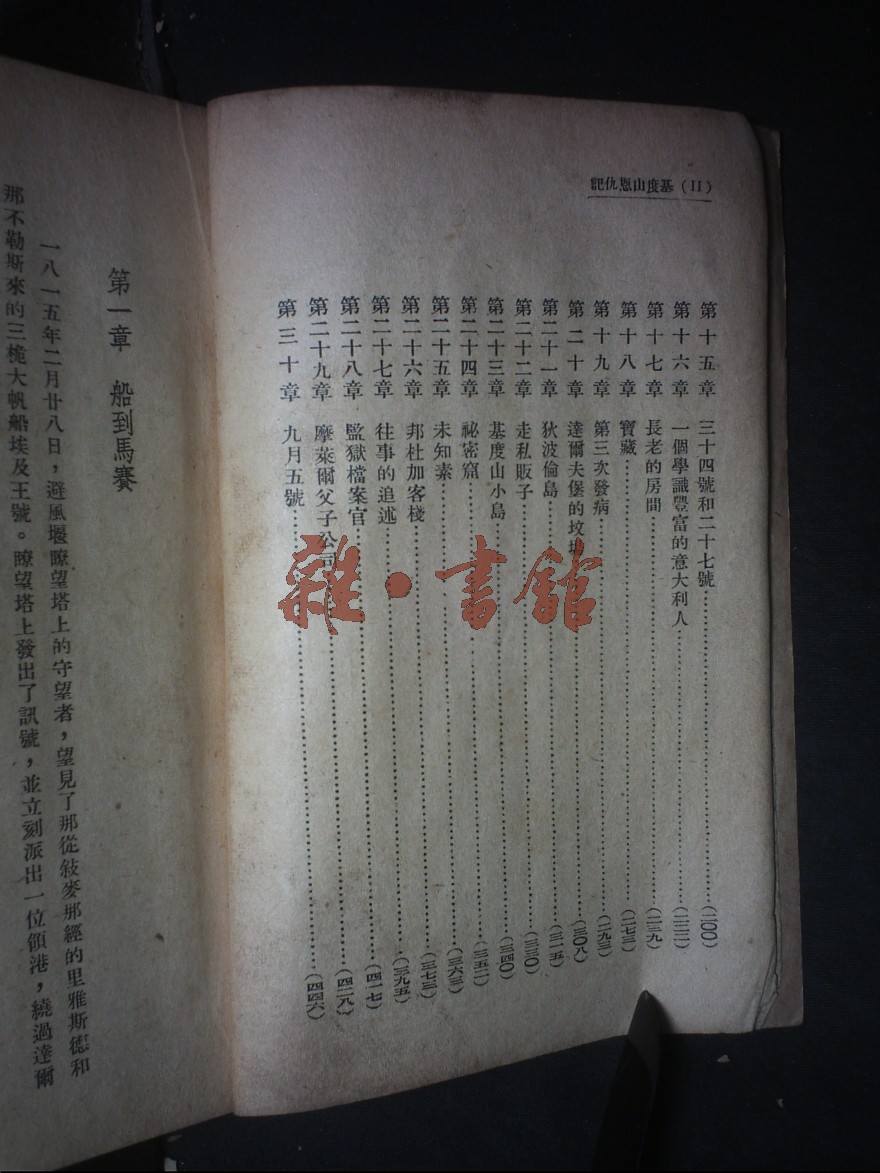 (II)基度山恩仇記
第十五章 三十四號和二十七號……(二〇〇)
第十六章 一個學識豐富的意大利人……(二二二)
第十七章 長老的房間……(二三九)
第十八章 寶藏……(二七三)
第十九章 第三次發病……(二九三)
第二十章 達爾夫堡的坟場……(三〇八)
第二十一章 狄波倫島……(三一五)
第二十二章 走私販子……(三三〇)
第二十三章 基度山小島……(三四〇)
第二十四章 祕密窟……(三五二)
第二十五章 未知素……(三六三)
第二十六章 邦杜加客棧……(三七三)
第二十七章 往事的追述……(三九五)
第二十八章 監獄檔案官……(四一七)
第二十九章 摩萊爾父子公司……(四二八)
第三十章 九月五號……(四四六)
第一章 船到馬賽
一八一五年二月廿八日，避風堰瞭望塔上的守望者，望見了那從敍麥那經的里雅斯德和
那不勒斯來的三桅大帆船埃及王號。瞭望塔上發出了訊號，並立刻派出一位領港，繞過達爾
雜·書館